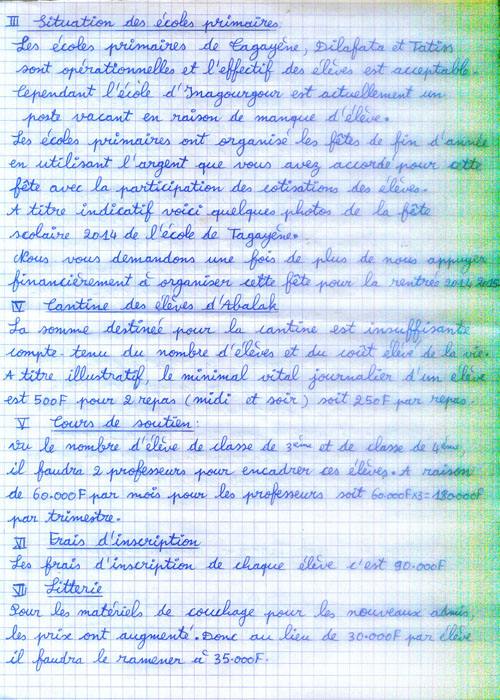 III Situation des écoles primaires
Les écoles primaires de Tagayène, Dilafata et Tatiss
sont opérationnelles et l'effectif des élèves est acceptable.
Cependant l'école d'Inagourgour est actuellement un
poste vacant en raison de manque d'élève.
Les écoles primaires ont organisé les fêtes de fin d'année
en utilisant l'argent que vous avez accordé pour cette
fête avec la participation des cotisations des élèves.
A titre indicatif voici quelques photos de la fête
scolaire 2014 de l'école de Tagayène.
Nous vous demandons une fois de plus de nous appuyer
financièrement à organiser cette fête pour la rentrée 2014 2015
IV Cantine des élèves d'Abalak
La somme destinée pour la cantine est insuffisante
compte-tenu du nombre d'élèves et du coût élevé de la vie.
A titre illustratif, le minimal vital journalier d'un élève
est 500F pour 2 repas (midi et soir) soit 250F par repas.
V Cours de soutien:
Vu le nombre d'élève de classe de 3ème et de classe de 4ème,
il faudra 2 professeurs pour encadrer ces élèves. A raison
de 60.000F par mois pour les professeurs soit 60.000F x3 = 180.000F
par trimestre.
XI Frais d'inscription
Les frais d'inscription de chaque élève c'est 90.000F
VII Litterie
Pour les matériels de couchage pour les nouveaux admis,
les prix ont augmenté. Donc au lieu de 30.000F par élève
il faudra le ramener à 35.000F.